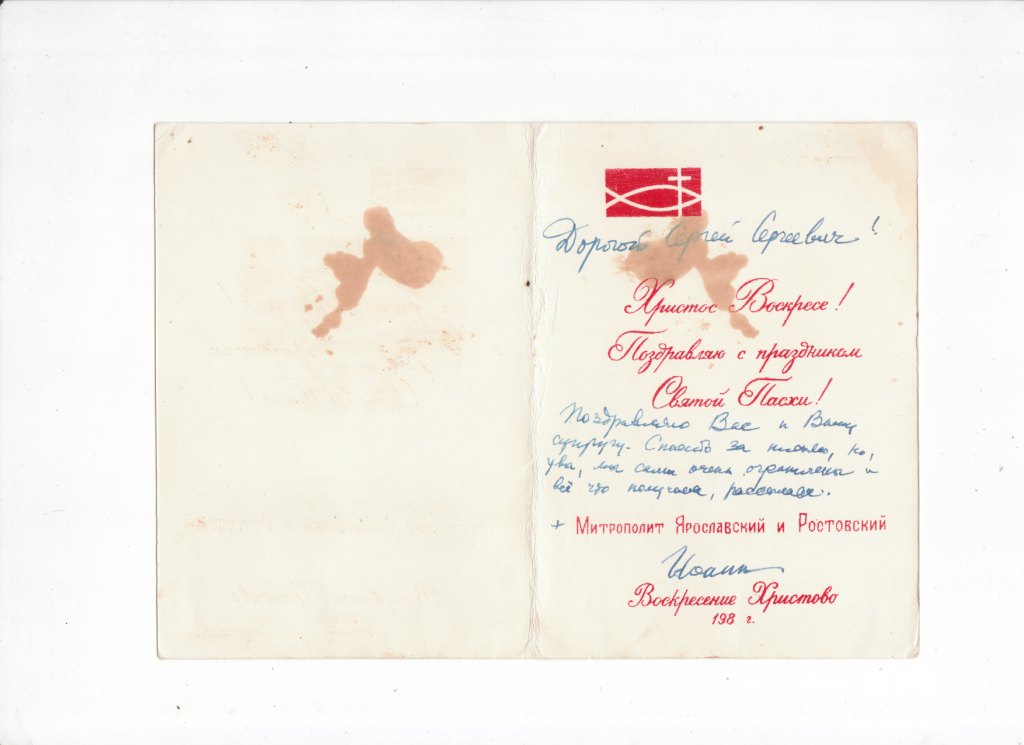 Дорогой Сергей Сергеевич!
Христос Воскресе!
Поздравляю с праздником
Святой Пасхи!
Поздравляю Вас и Вашу
супругу. Спасибо за письмо, но,
увы, мы сами очень ограничены и
всё что получаем, рассылаем.
+ Митрополит Ярославский и Ростовский
Иоанн
Воскресение Христово
198 г.